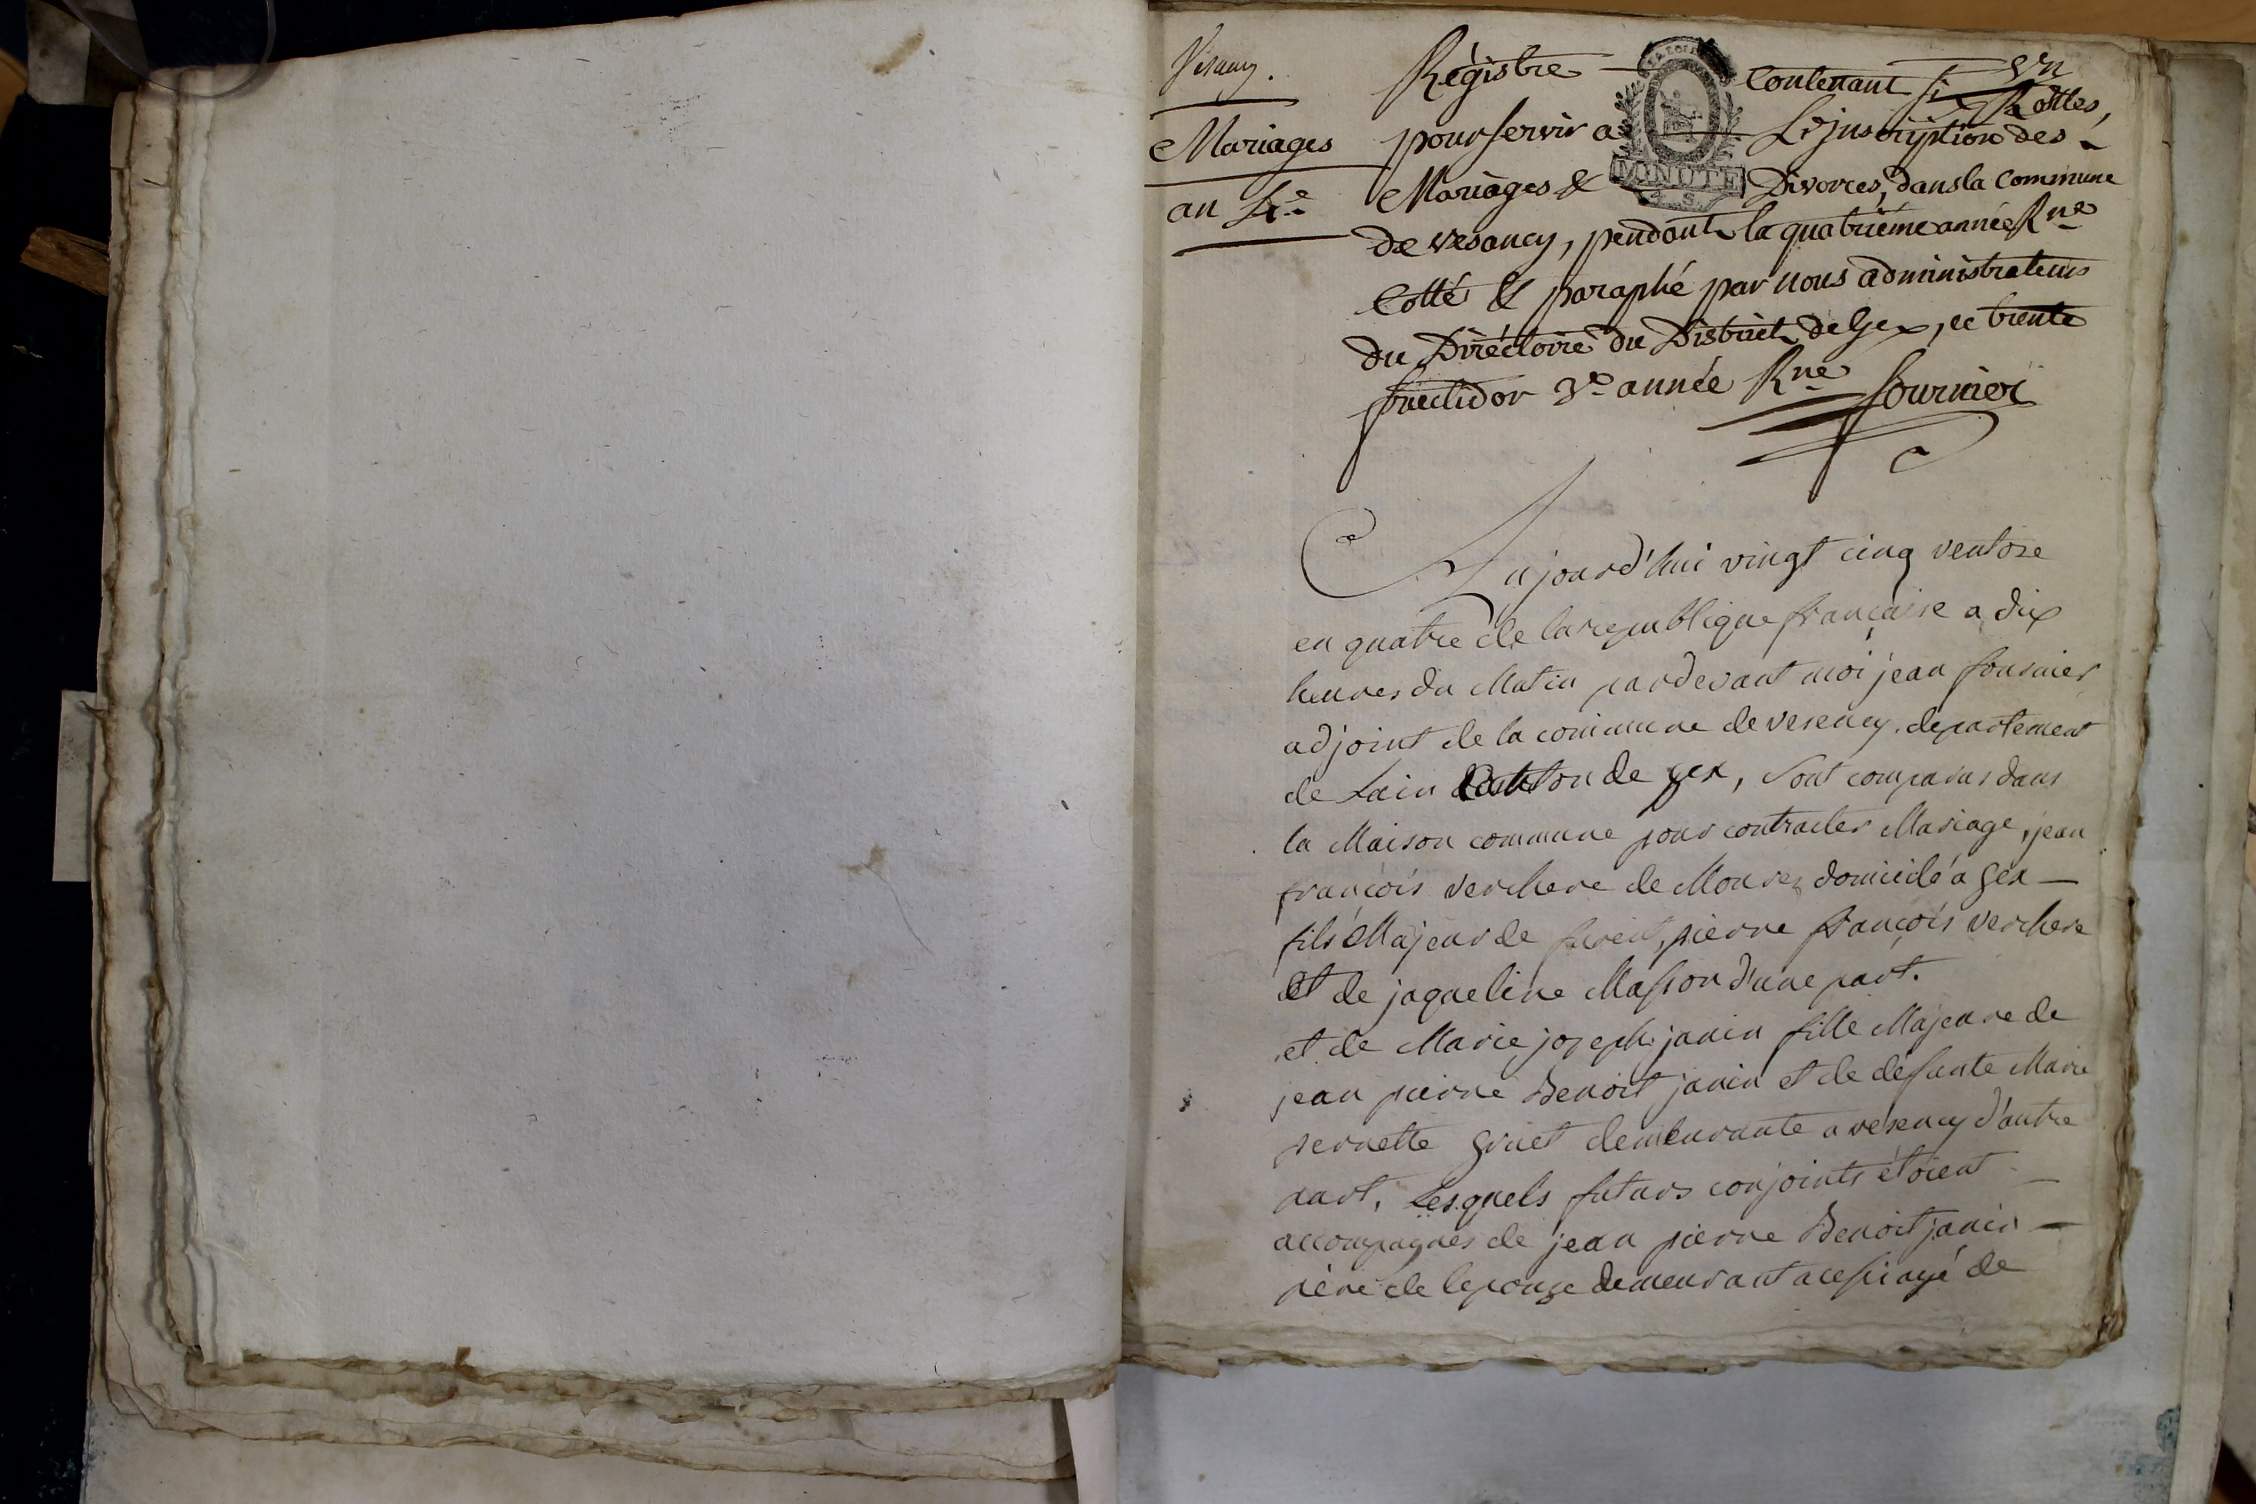 Vesancy.
Mariages
an 4.e
Régistre Contenant six Rolles,
vn
pour servir a L'jnscription des
Mariages & Divorces, dans la Commune
de vesancy, pendant la quatriéme année Rne
Cotté & paraphé par nous administrateurs
du Diréctoire du District de Gex, ce trente
fructidor 3.e année Rne fournier
MINUTE
4. S.
Aujourd'hui vingt cinq ventose
en quatre de la republique française a dix
heures du Matin pardevant moi jean fournier
adjoint de la commune de vesency. departement
de Lain Canton de gex, Sont comparus dans
la Maison commune pour contracter Mariage, jean
françois verchere de Mourez domicilé a gex —
fils Majeur de pierre françois verchere
et de jaqueline Masson d'une part.
et de Marie joseph janin fille Majeure de
jean pierre Benoit janin et de defunte Marie
pernette gruet demeurante a vésency d'autre
part, Lesquels futurs conjoints étoient —
accompagnés de jean pierre Benoit janin —
père de lepouze demeurant agé de